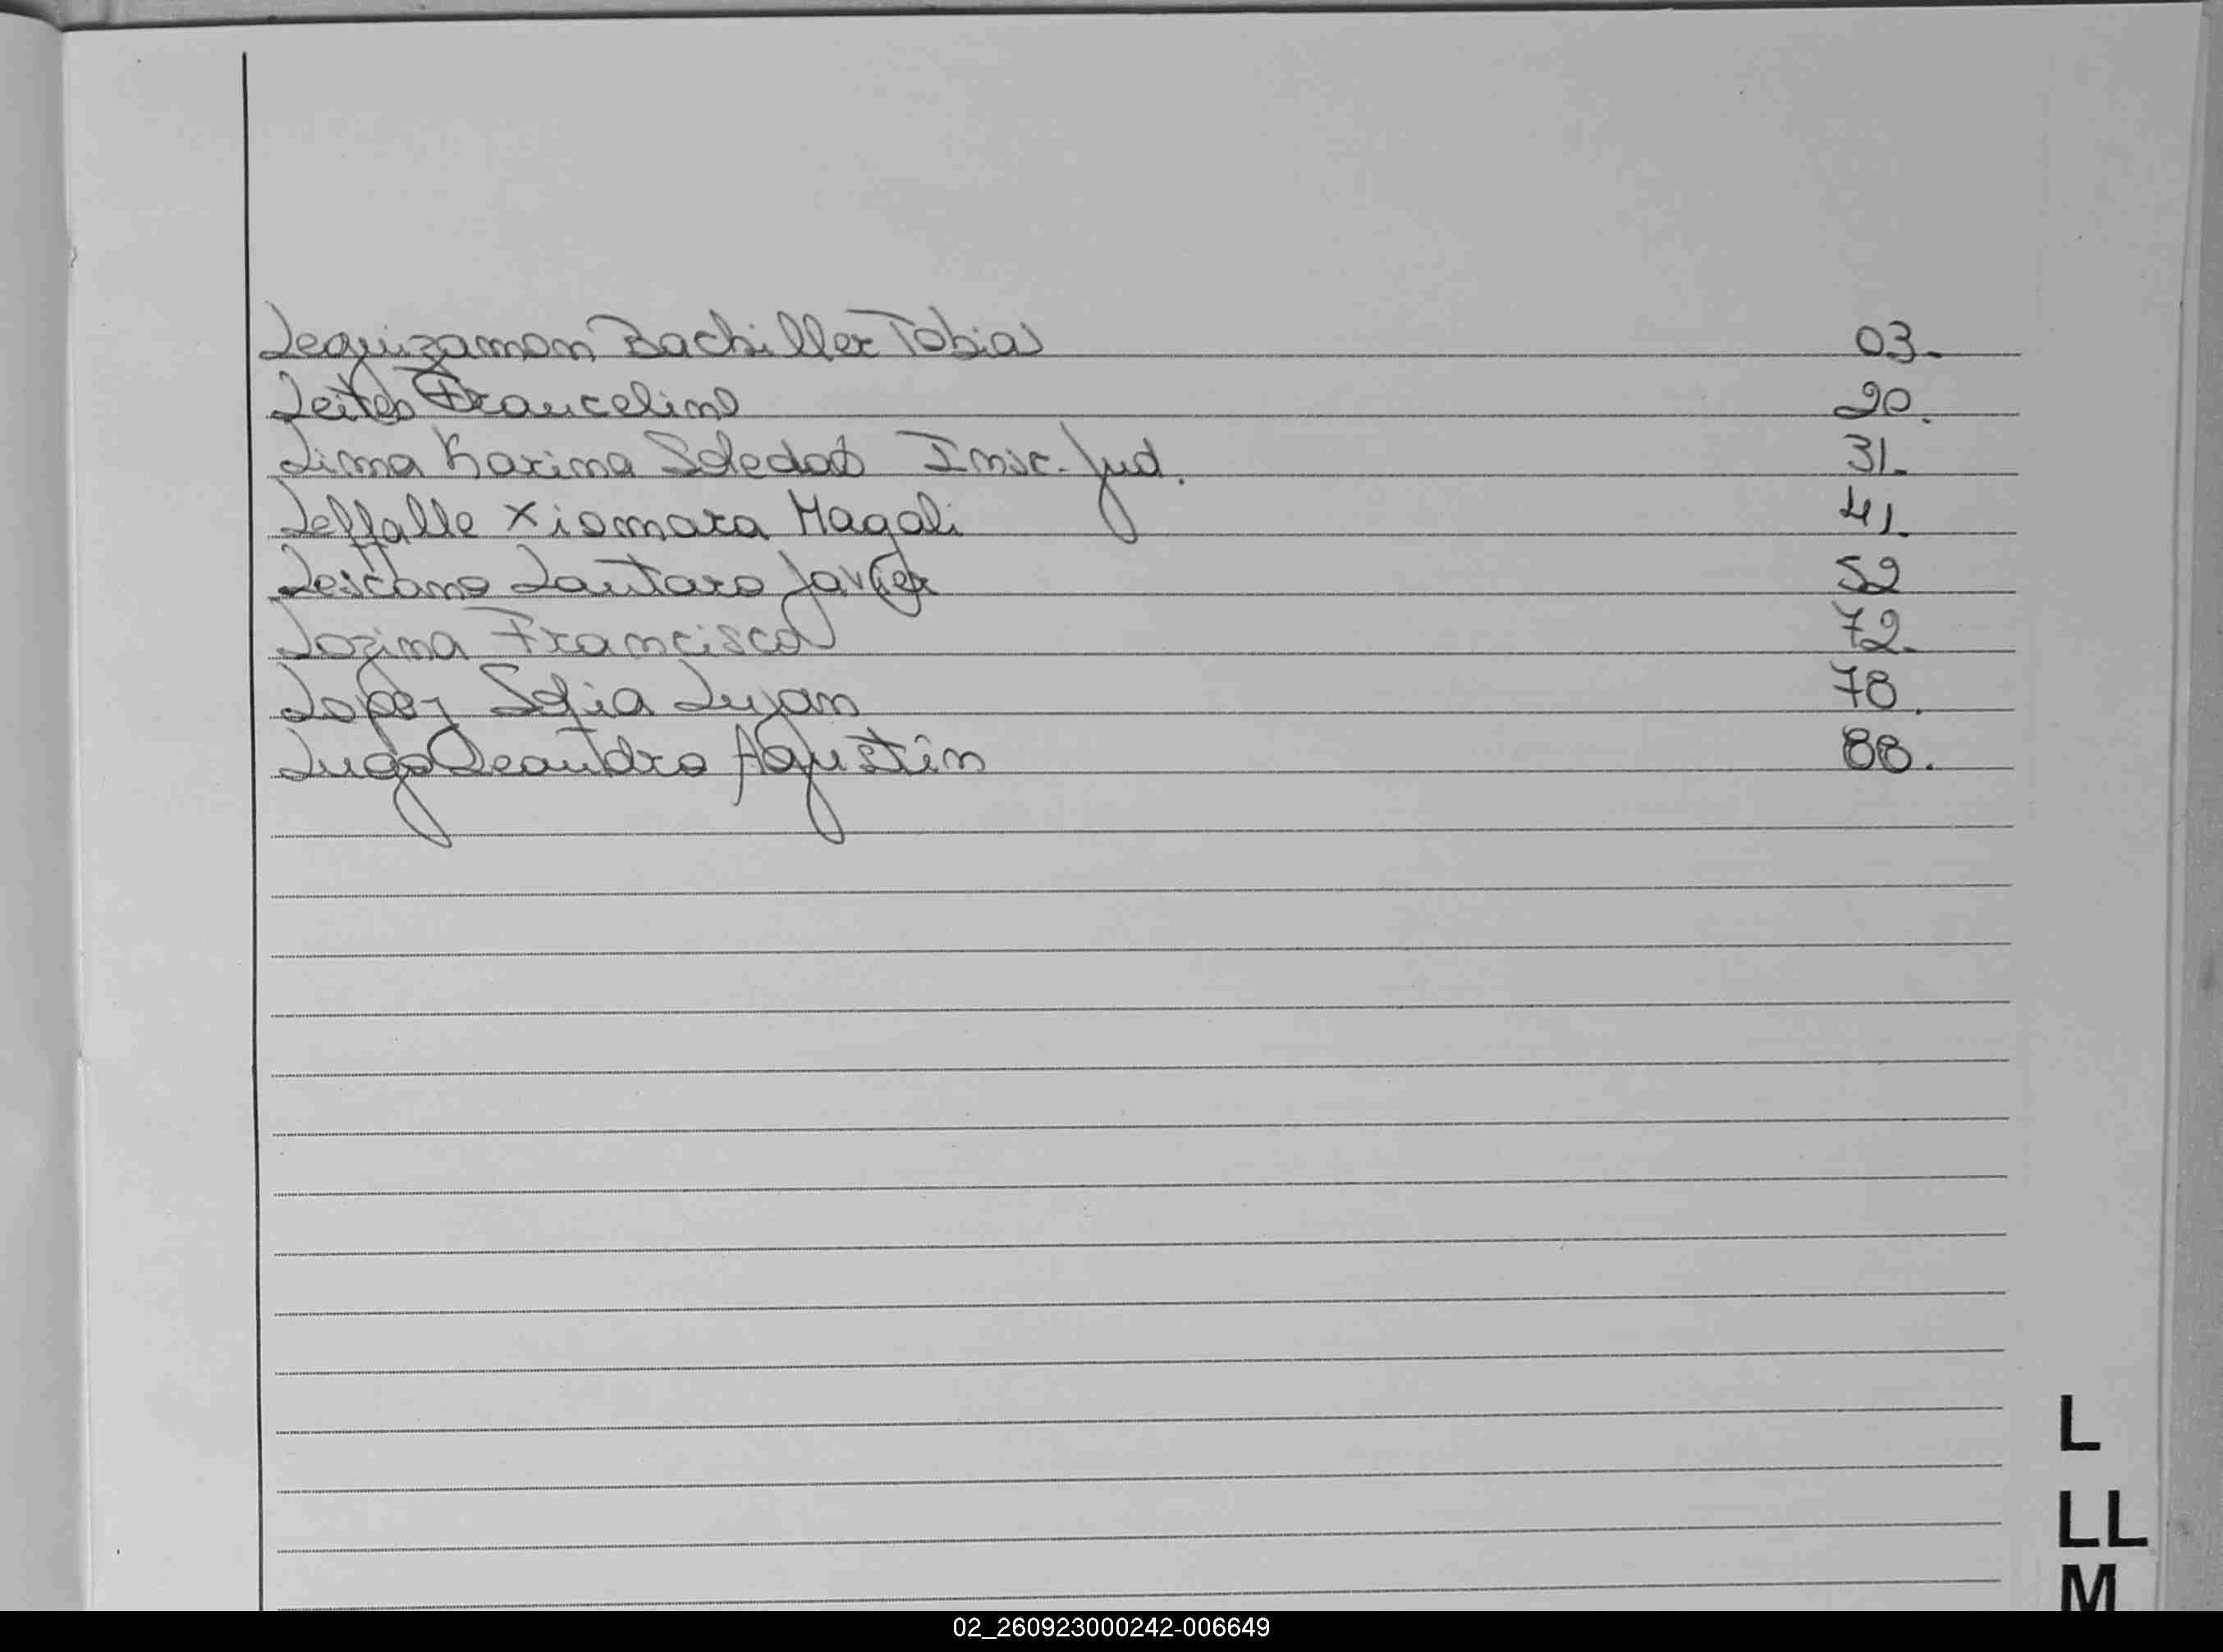 Leguizamon Bachiller Tobias 03.
Leites Francelino 20.
Lima Karina Soledad Insc. Jud. 31.
Leffalle Xiomara Magali 41.
Lescano Lautaro Javier 52
Lozina Francisco 72.
Lopez Sofia Lujan 78.
Lugo Leandro Agustin 88.
L
LL
M
02_260923000242-006649